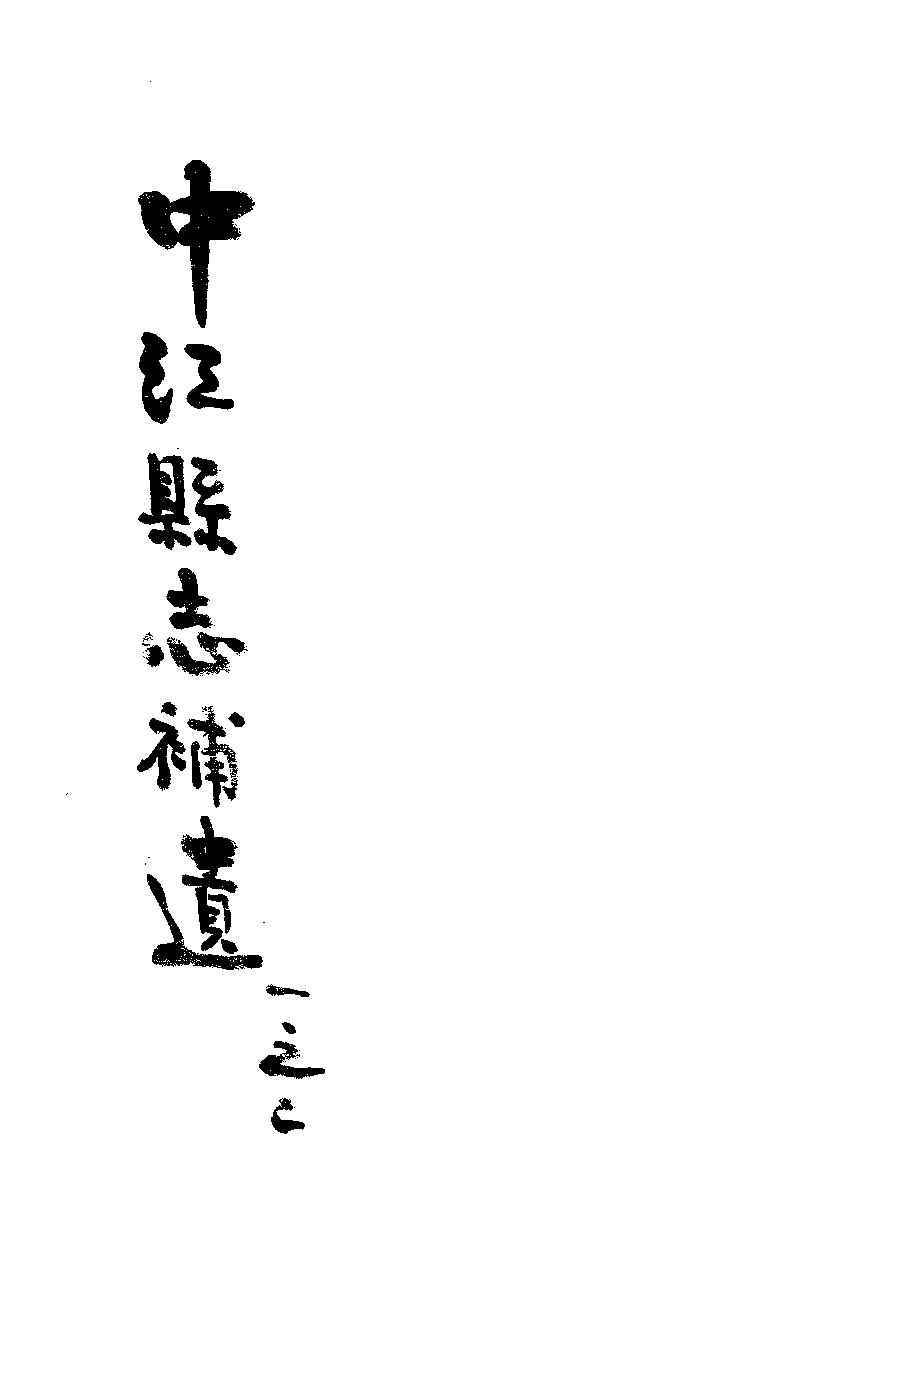 中江縣志補遺
一之二